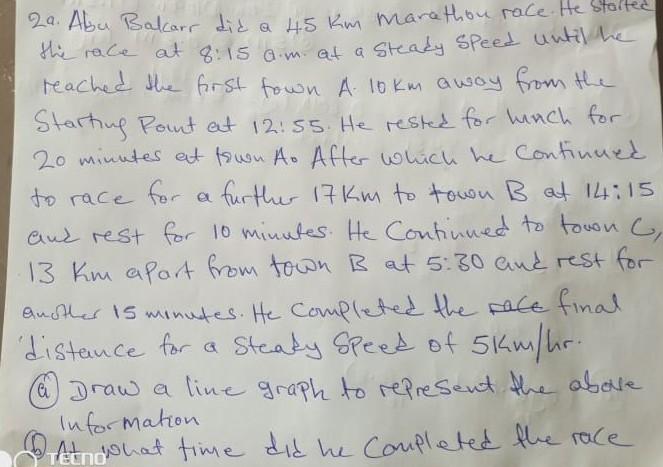 2a. Abu Bakarr did a 45 Km marathon race. He started
the race at 8:15 a.m. at a steady speed until he
reached the first town A. 10 Km away from the
Starting Point at 12:55. He rested for lunch for
20 minutes at town A. After which he Continued
to race for a further 17 Km to town B at 14:15
and rest for 10 minutes. He Continued to town C,
13 Km apart from town B at 5:30 and rest for
another 15 minutes. He Completed the race final
distance for a Steady Speed of 5Km/hr.
(a) Draw a line graph to represent the above
Information
(b) At what time did he Completed the race
TECNO